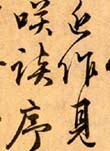 近作見
咲談序